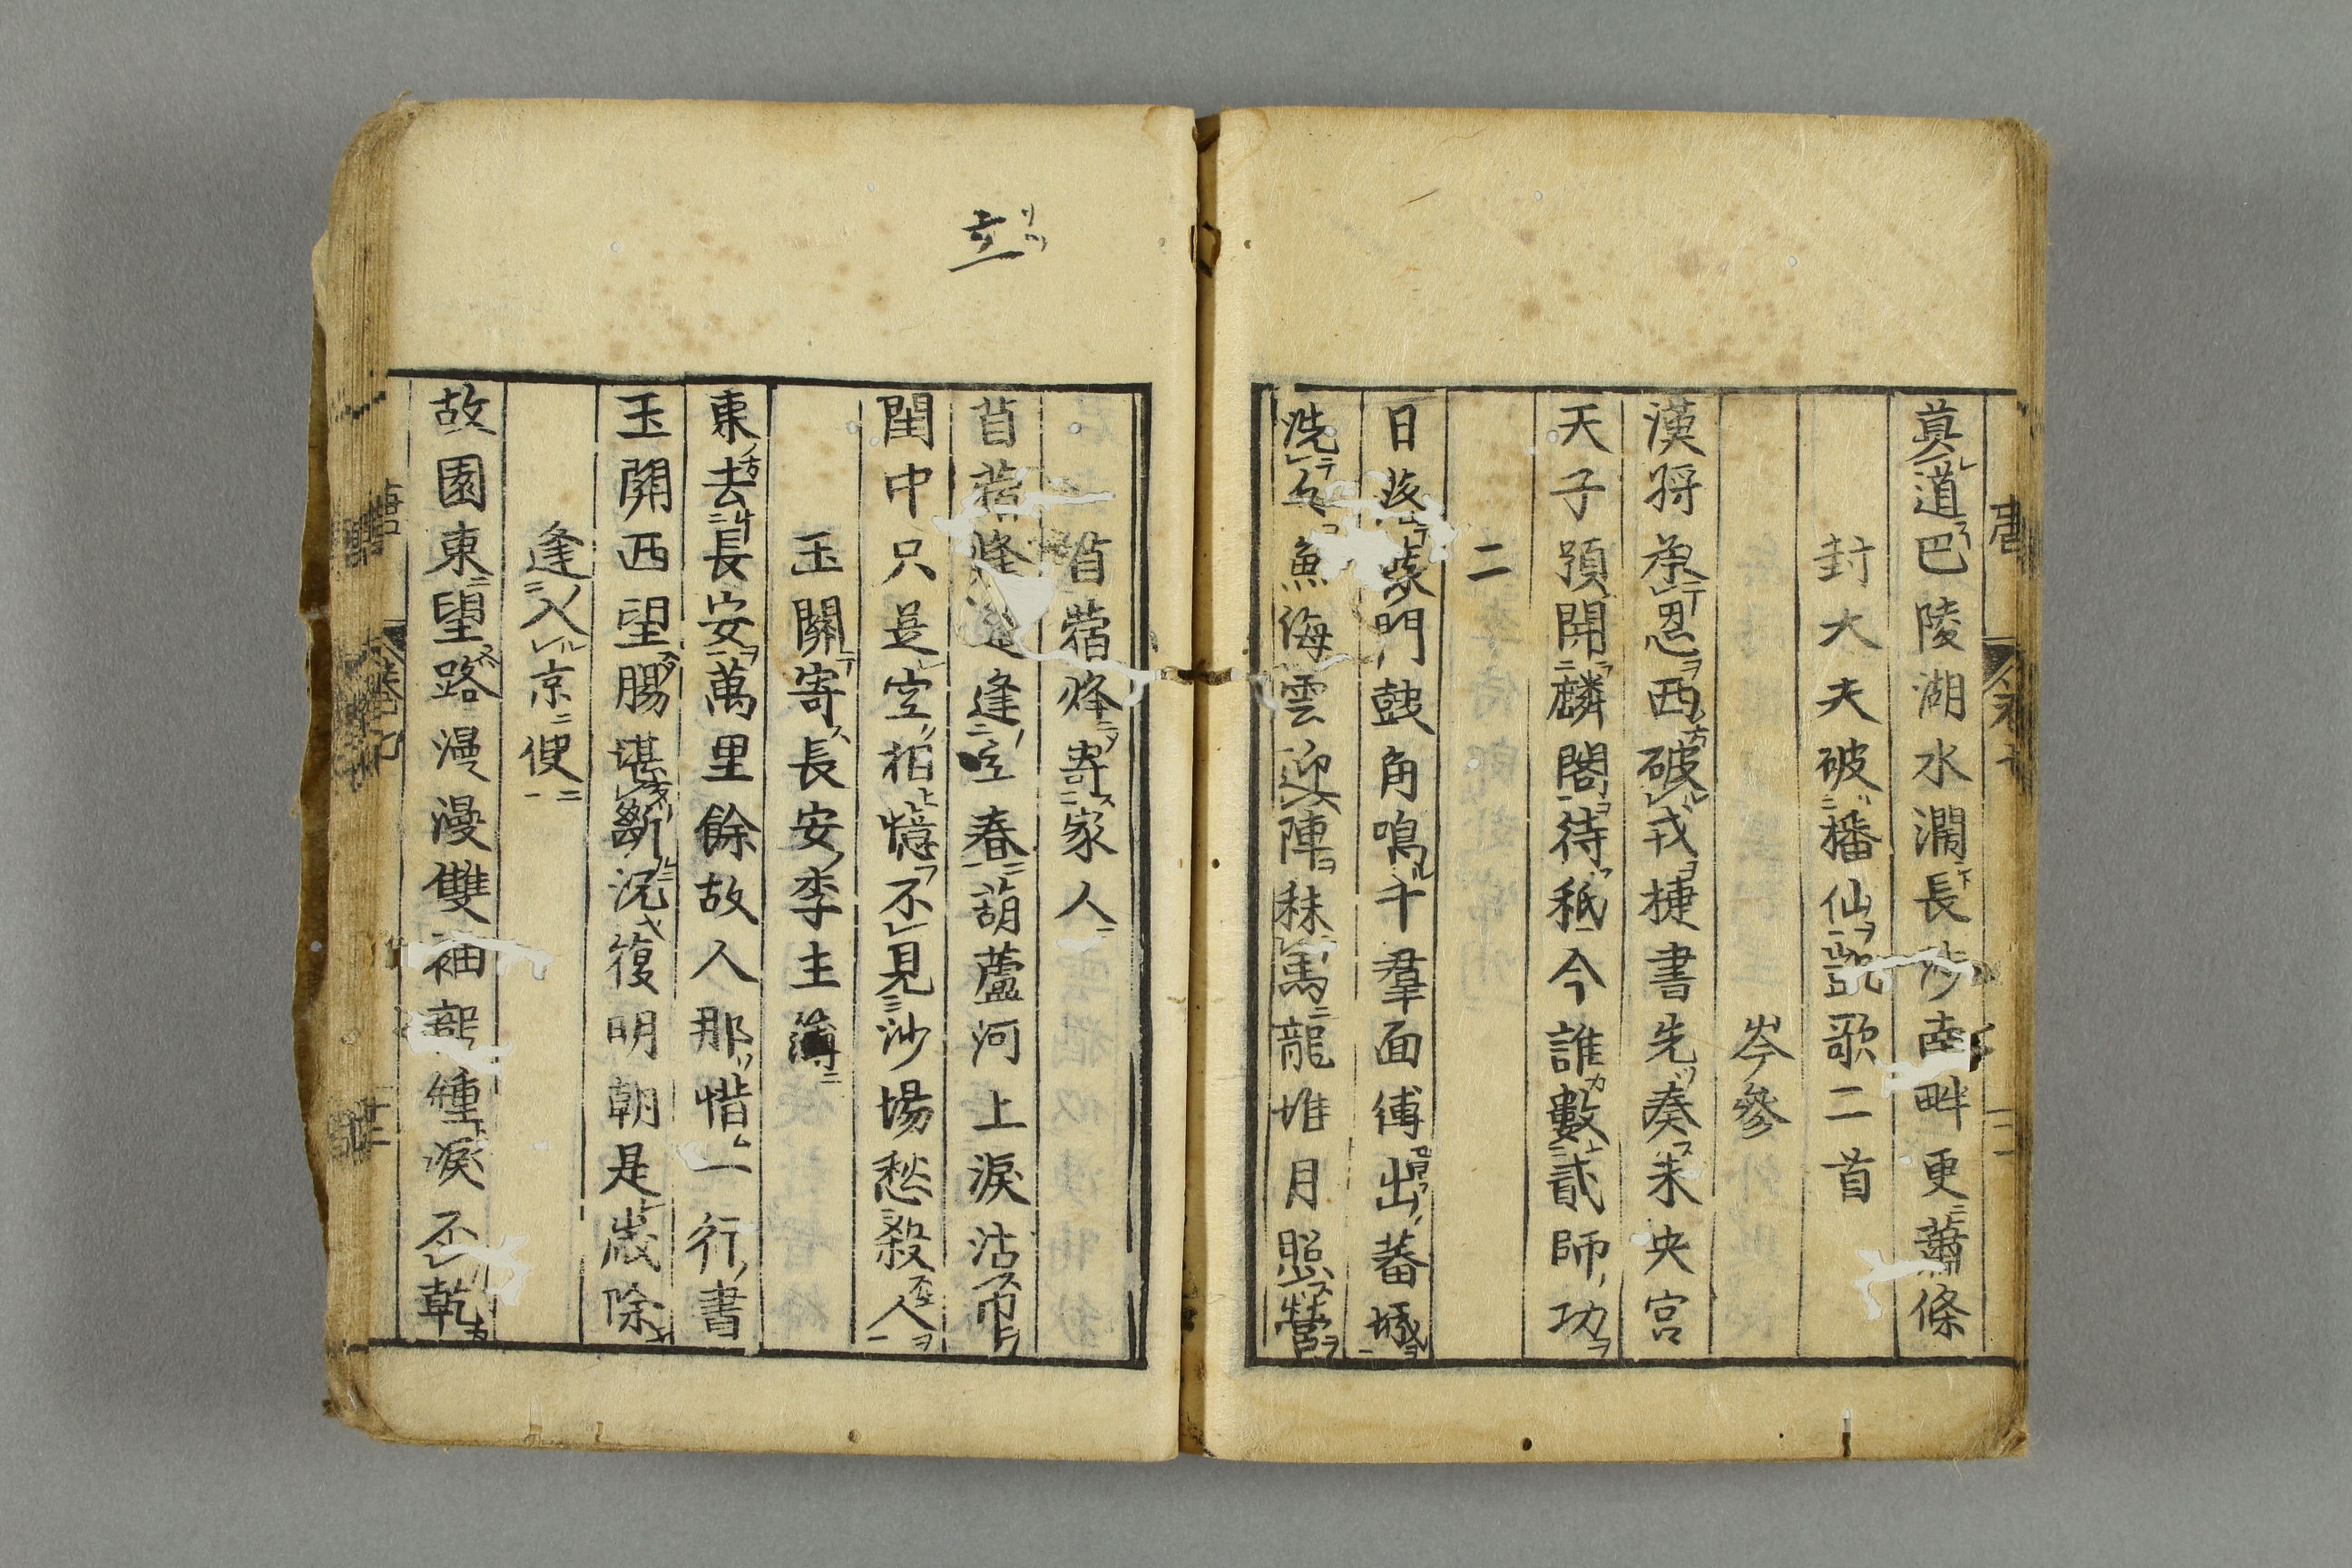 莫道巴陵湖水濶長沙南畔更蕭條
封大夫破播仙凱歌二首
岑參
漢将承恩西破戎捷書先奏未央宮
天子預開麟閣待秖今誰數貳師功
二
日落轅門鼓角鳴千羣面縛出蕃城
洗兵魚海雲迎陣秣馬龍堆月照營
苜蓿烽寄家人
苜蓿烽邊逢立春葫蘆河上淚沾巾
閨中只是空相憶不見沙場愁殺人
玉關寄長安李主簿
東去長安萬里餘故人那惜一行書
玉關西望腸堪斷況復明朝是歲除
逢入京使
故園東望路漫漫雙袖龍鍾淚不乾
立